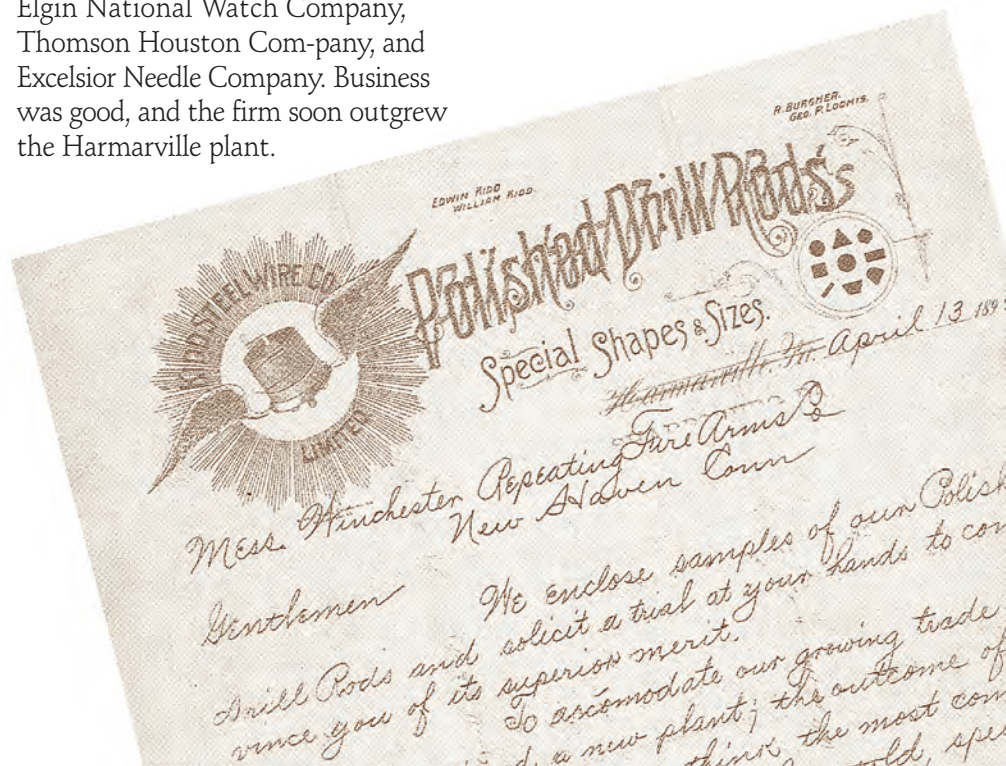 Elgin National Watch Company,
Thomson Houston Com-pany, and
Excelsior Needle Company. Business
was good, and the firm soon outgrew
the Harmarville plant.
R. BURGHER.
GEO. P. LOOMIS.
EDWIN KIDD
WILLIAM KIDD.
KIDD STEEL WIRE CO
LIMITED
Polished Drill Rods
Special Shapes & Sizes.
Harmarville, Pa. April 13 189
Mess. Winchester Repeating Fire Arms Co
New Haven Conn
Gentlemen We enclose samples of our Polish
Drill Rods and solicit a trial at your hands to con
vince you of its superior merit.
To accomodate our growing trade
a new plant; the outcome of
think the most con
old, spe